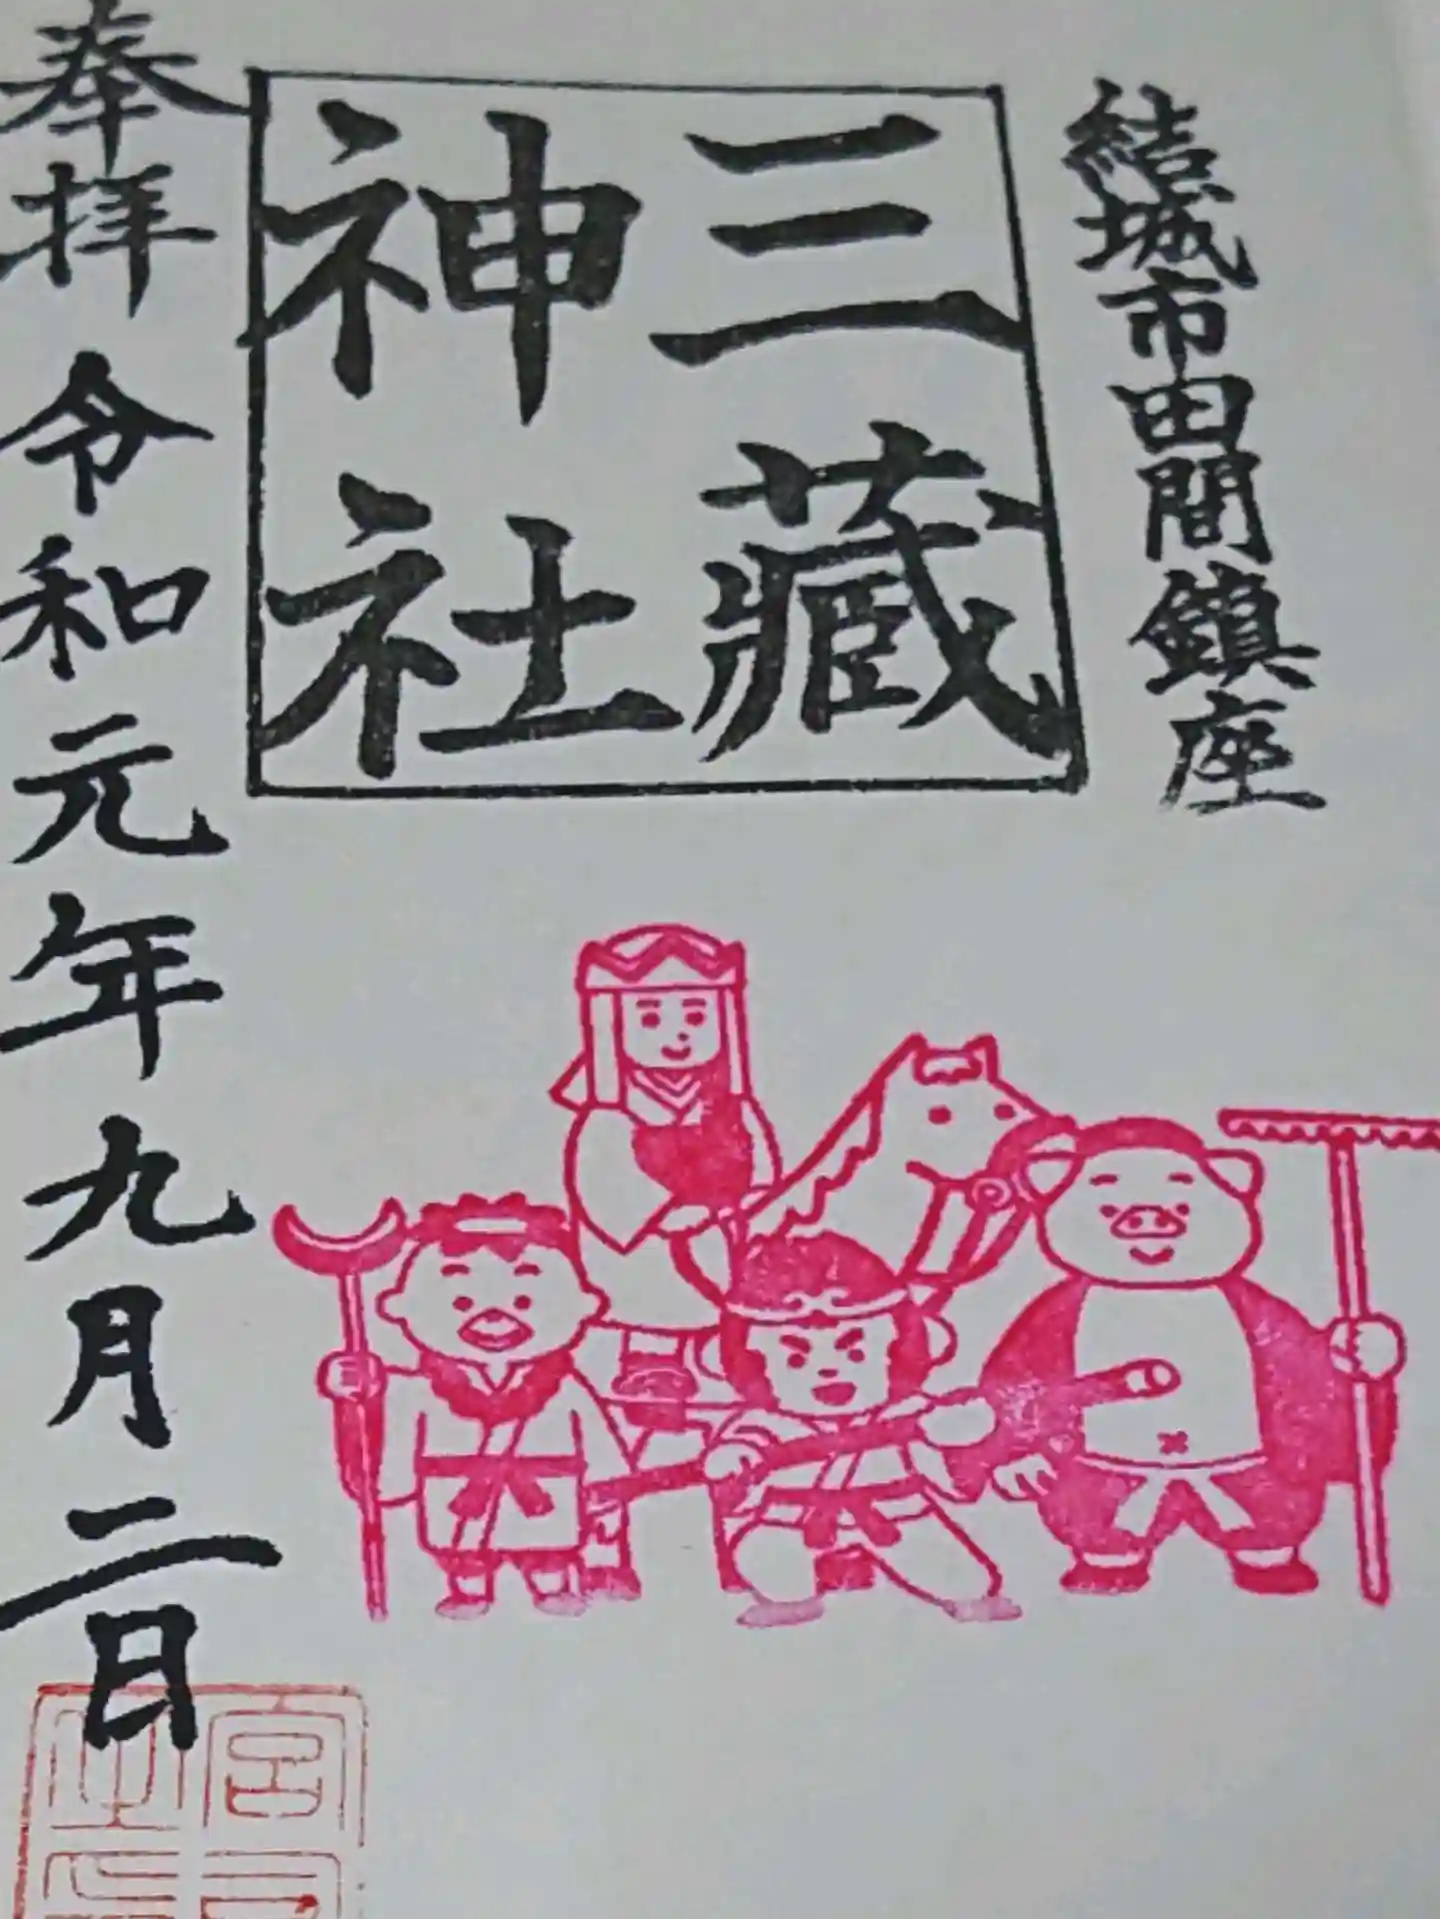 結城市田間鎮座
三藏
神社
奉拝 令和元年九月二日
宮司之印